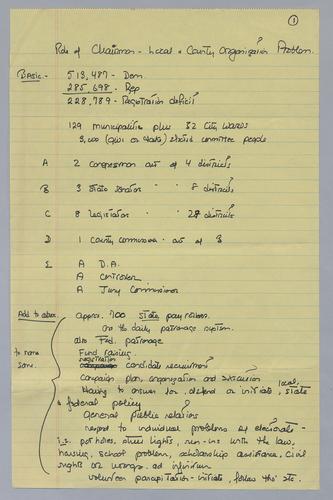 1
Role of Chairman - Local & County Organization Problem.
Basic - 513,487 - Dem.
285,698 - Rep
228,789 - Registration deficit
129 municipalities plus 32 City Wards
3,000 (give or take) elected committee people
A 2 Congressmen out of 4 districts
B 3 State Senators " " 8 districts
C 8 legislators " " 28 districts
D 1 County Commissioner - out of 3
E A D.A.
A Controller
A Jury Commissioner
Add to above: approx. 700 State payrollers
on the daily patronage system.
also Fed. patronage
to name some: Fund raising
registration
candidate recruitment
Campaign plan, organization and execution
Having to answer for, defend or initiate, local, state
& federal policy
General public relations
respond to individual problems of electorate -
i.e. pot holes, street lights, run-ins with the law,
housing, school problem, scholarship assistance, civil
rights or wrongs. ad infinitum
volunteer participation - initiate, follow thru etc.